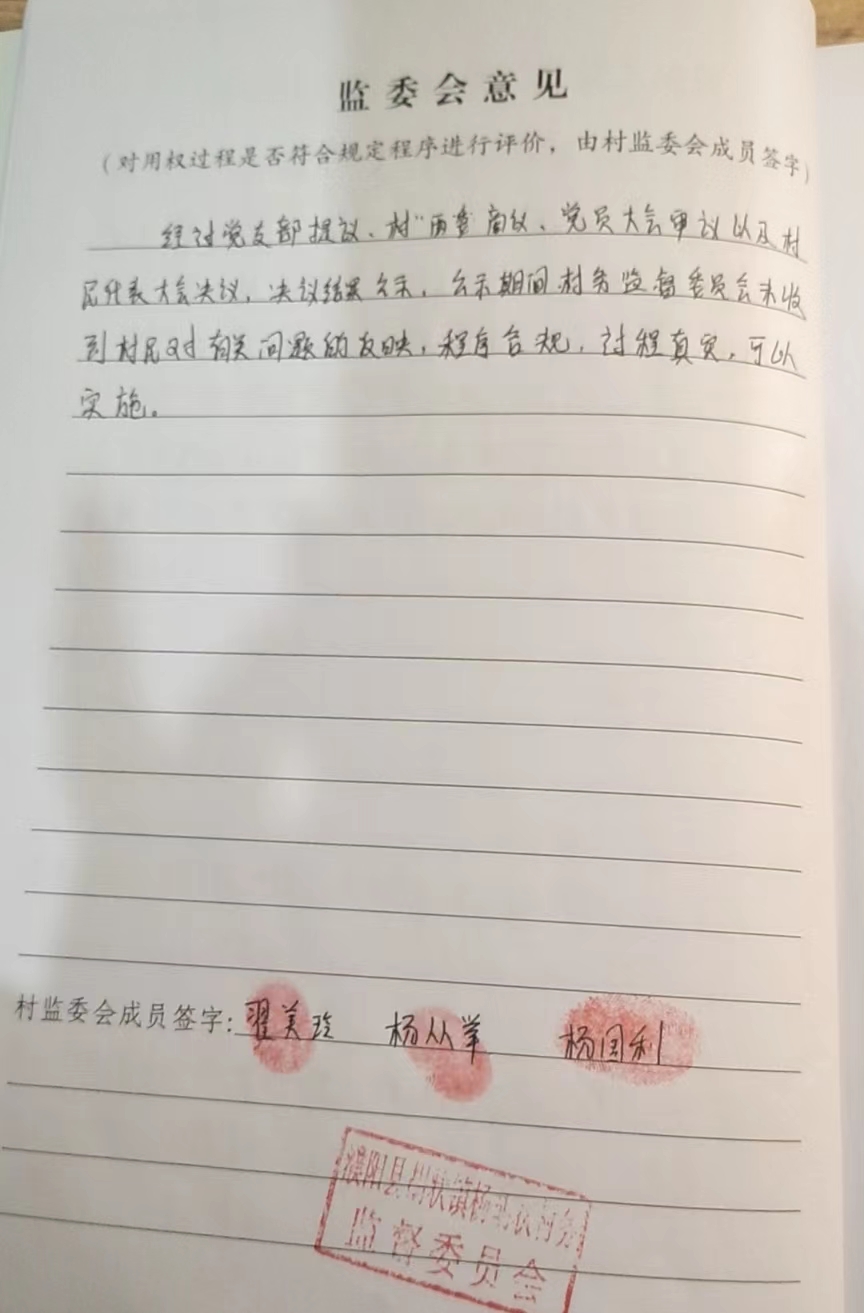 监委会意见
（对用权过程是否符合规定程序进行评价，由村监委会成员签字）
经过党支部提议、村“两委商议、党员大会审议以及村
民代表大会决议，决议结果公示，公示期间村务监督委员会未收
到村民对有关问题的反映，程序合规，过程真实，可以
实施。
村监委会成员签字：翟美玲 杨从举 杨国利
濮阳县胡状镇杨 村务
监督委员会